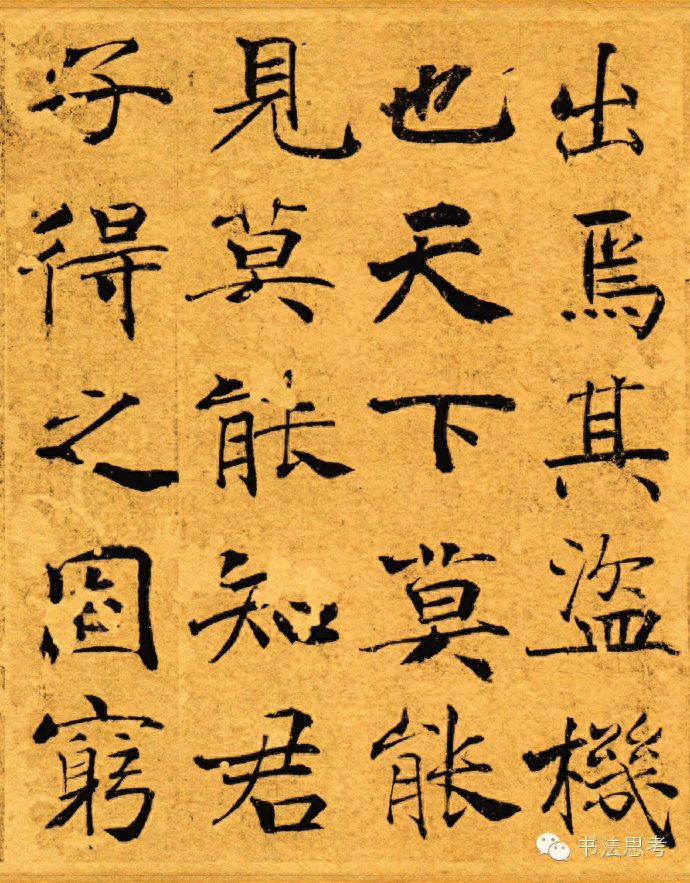 出焉其盜機
也天下莫能
見莫能知君
子得之固窮
书法思考